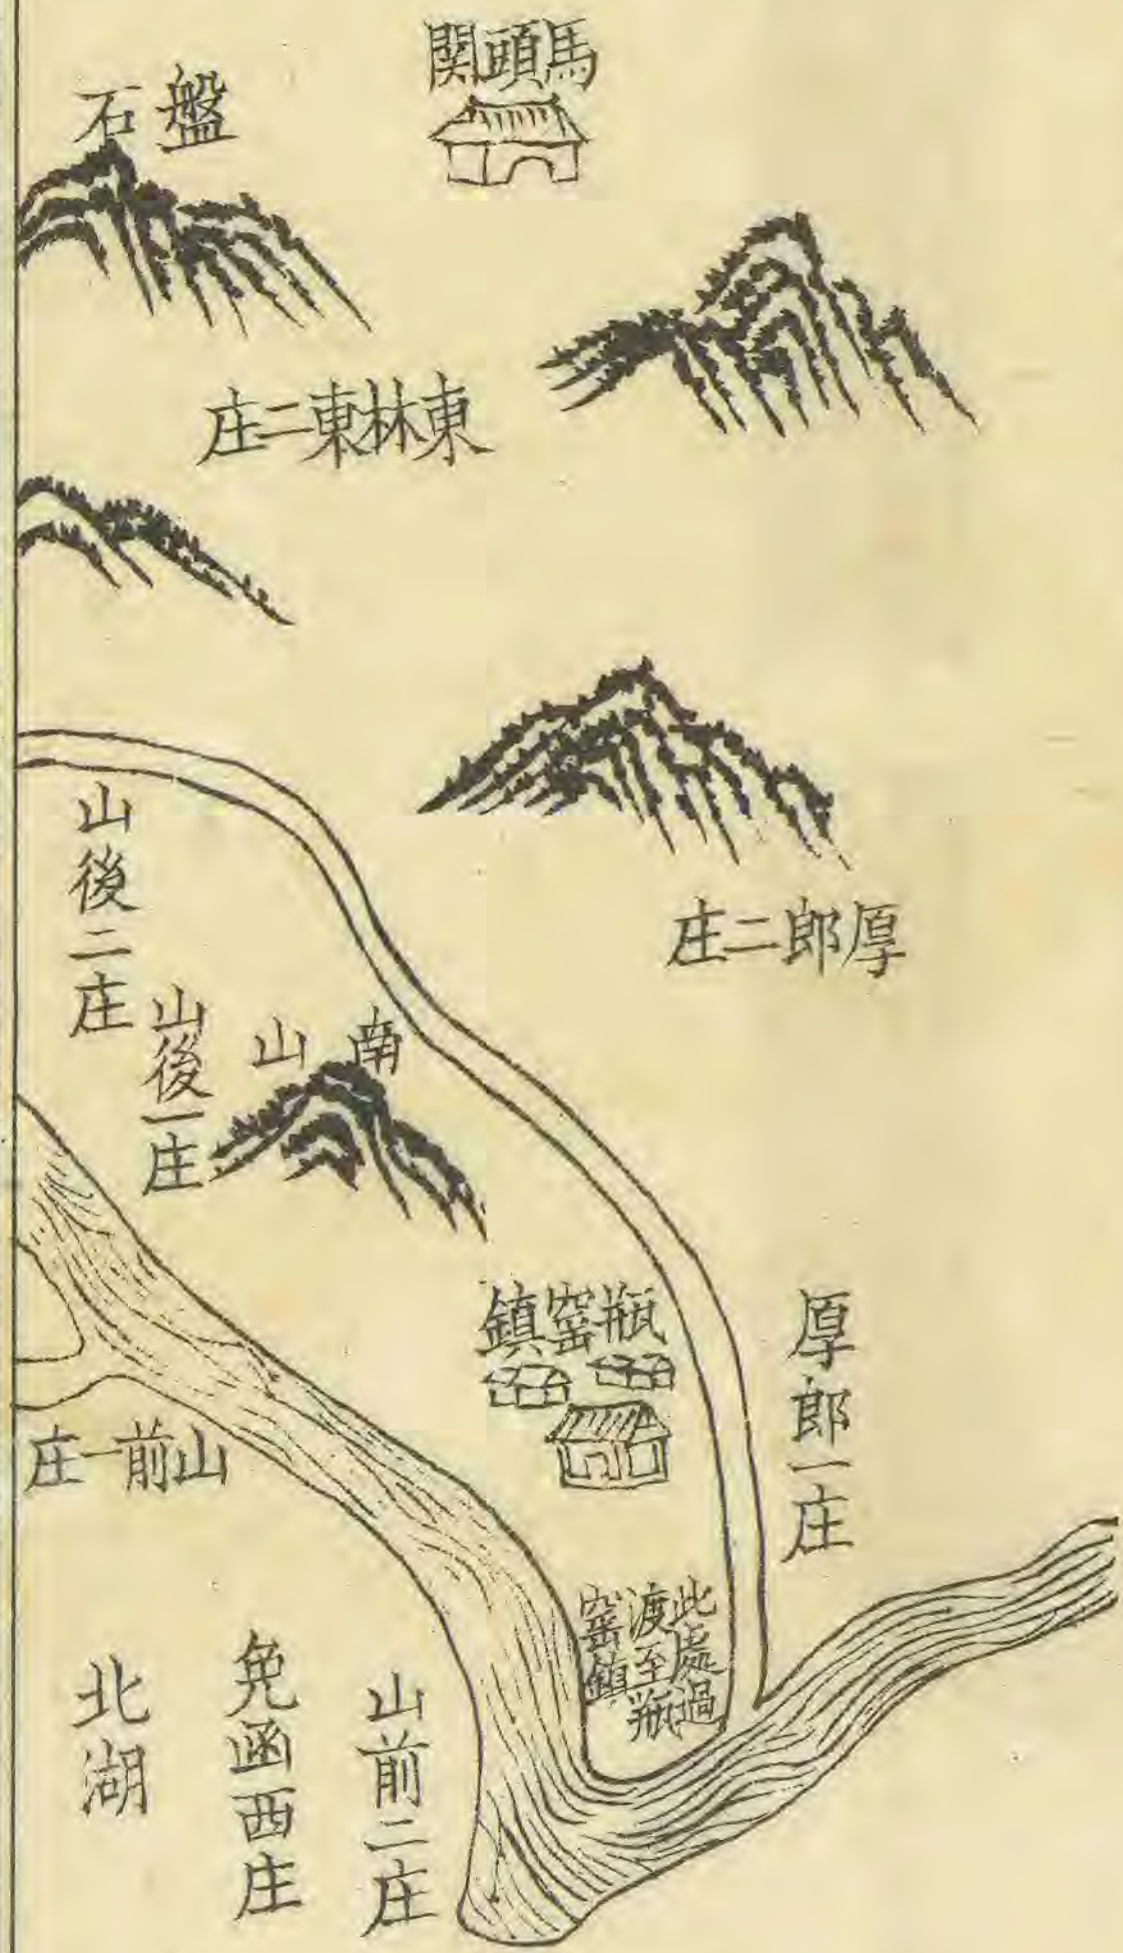 馬頭関
盤石
東林東二庄
厚郎二庄
山後二庄
南山
山後一庄
瓶窑鎮
厚郎一庄
山前一庄
此處過
渡至瓶
窑鎮
山前二庄
凫函西庄
北湖